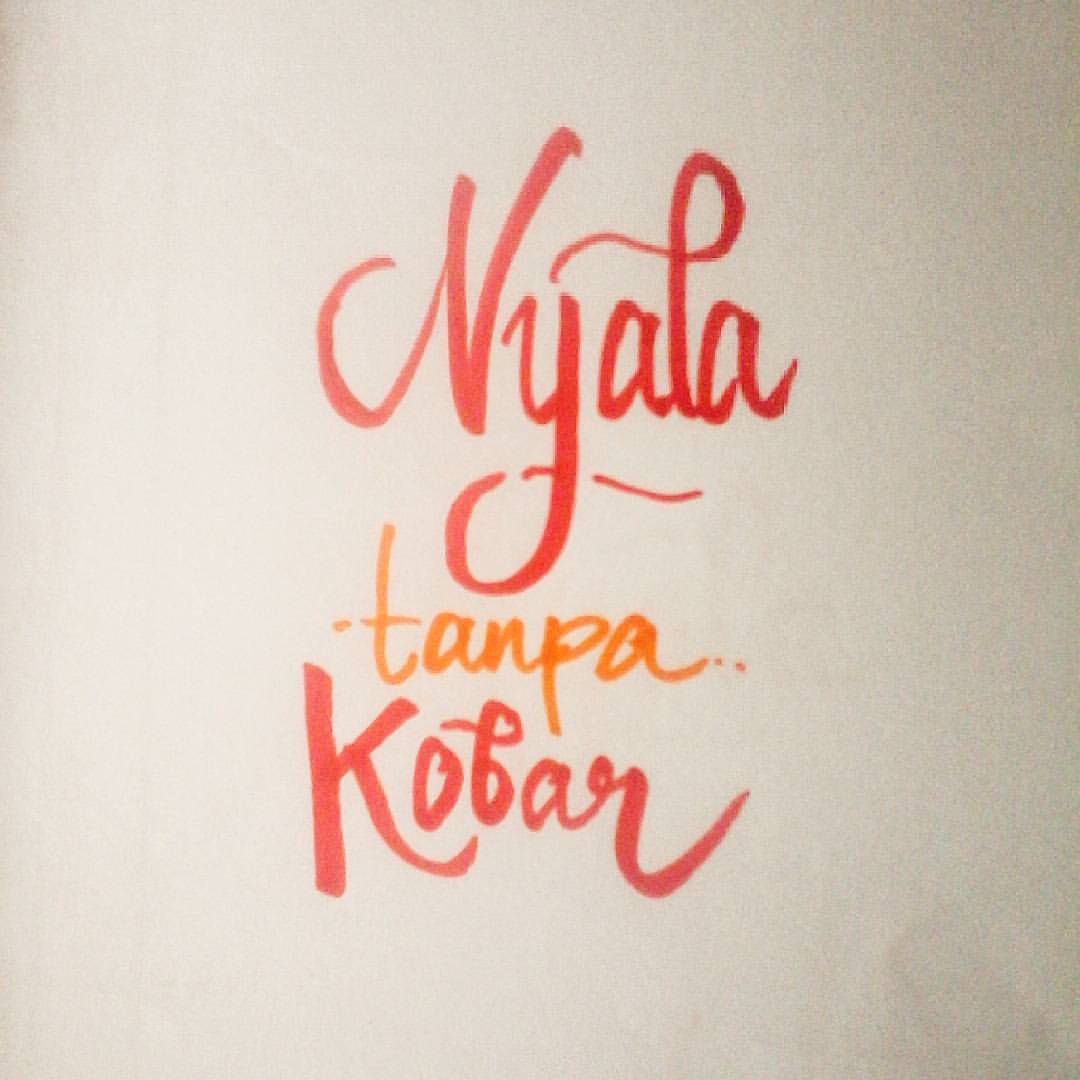 Nyala
tanpa
Kobar